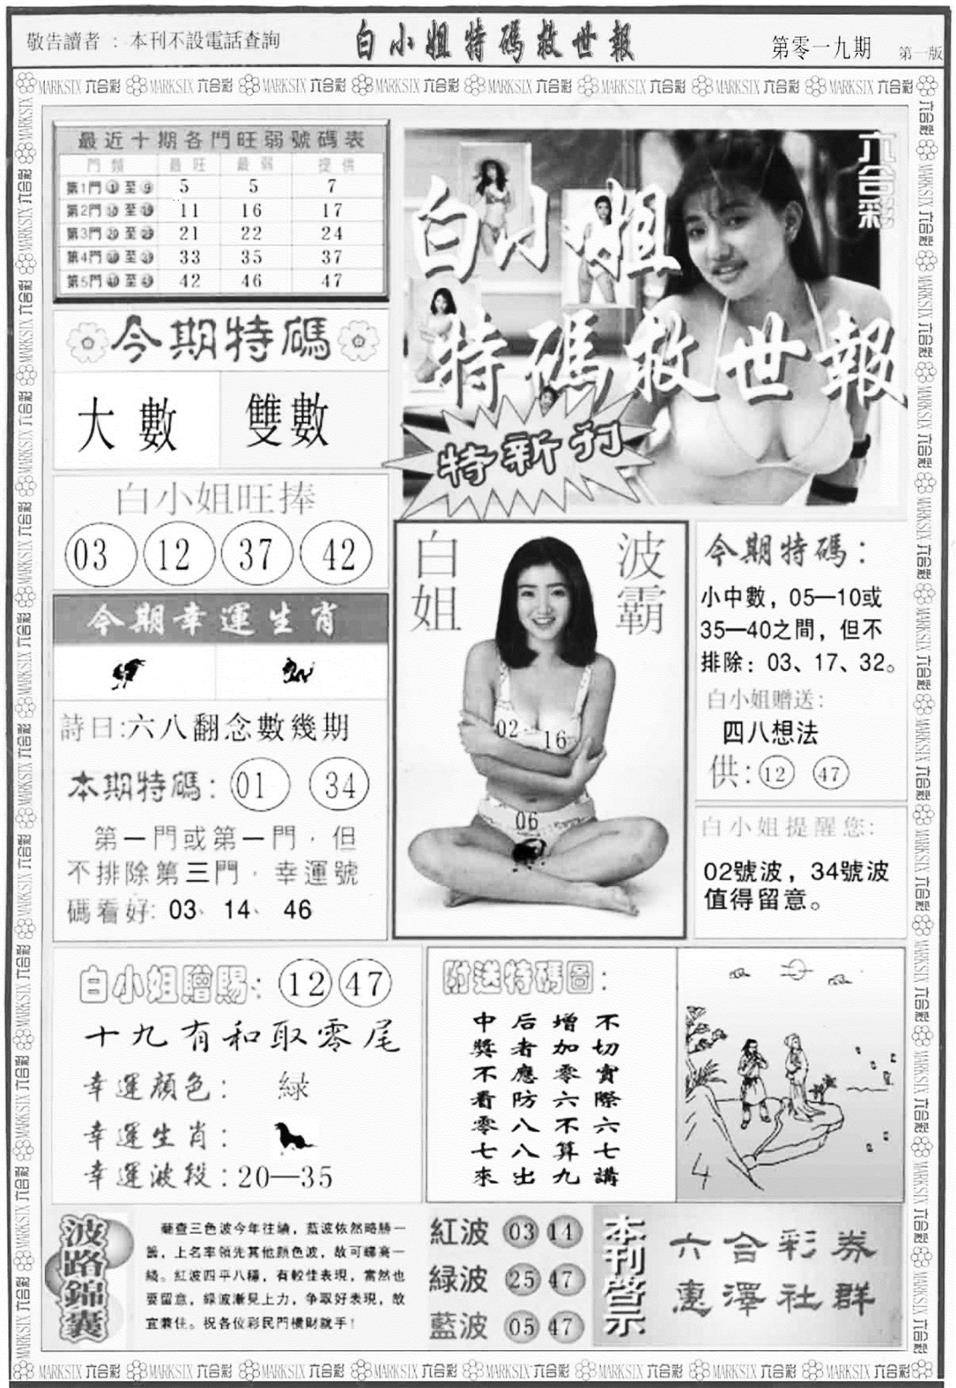 敬告讀者：本刊不設電話查詢
白小姐特碼救世報
第零一九期 第一版
MARKSIX 六合彩
最近十期各門旺弱號碼表
門類 最旺 最弱 提供
第1門①至⑨ 5 5 7
第2門⑩至⑲ 11 16 17
第3門⑳至㉙ 21 22 24
第4門㉚至㊴ 33 35 37
第5門㊵至㊾ 42 46 47
六合彩
白小姐
特碼救世報
特新刊
今期特碼
大數 雙數
白小姐旺捧
03 12 37 42
今期幸運生肖
詩曰:六八翻念數幾期
本期特碼: 01 34
第一門或第一門，但
不排除第三門，幸運號
碼看好: 03、14、46
白姐 波霸
02 16
06
今期特碼：
小中數，05—10或
35—40之間，但不
排除：03、17、32。
白小姐贈送:
四八想法
供: 12 47
白小姐提醒您:
02號波，34號波
值得留意。
白小姐贈賜: 12 47
十九有和取零尾
幸運顏色： 緑
幸運生肖：
幸運波段:20—35
附送特碼圖：
不切實際六七講
增加零六不算九
后者應防八八出
中獎不看零七來
4
波路錦囊
查三色波今年往績，藍波依然略勝一
籌，上名率領先其他顏色波，故可睇高一
綫。紅波四平八穩，有較佳表現，當然也
要留意，緑波漸見上力，争取好表現，故
宜兼住。祝各位彩民門橫財就手！
紅波 03 14
緑波 25 47
藍波 05 47
本刊啓示
六合彩券
惠澤社群
MARKSIX 六合彩